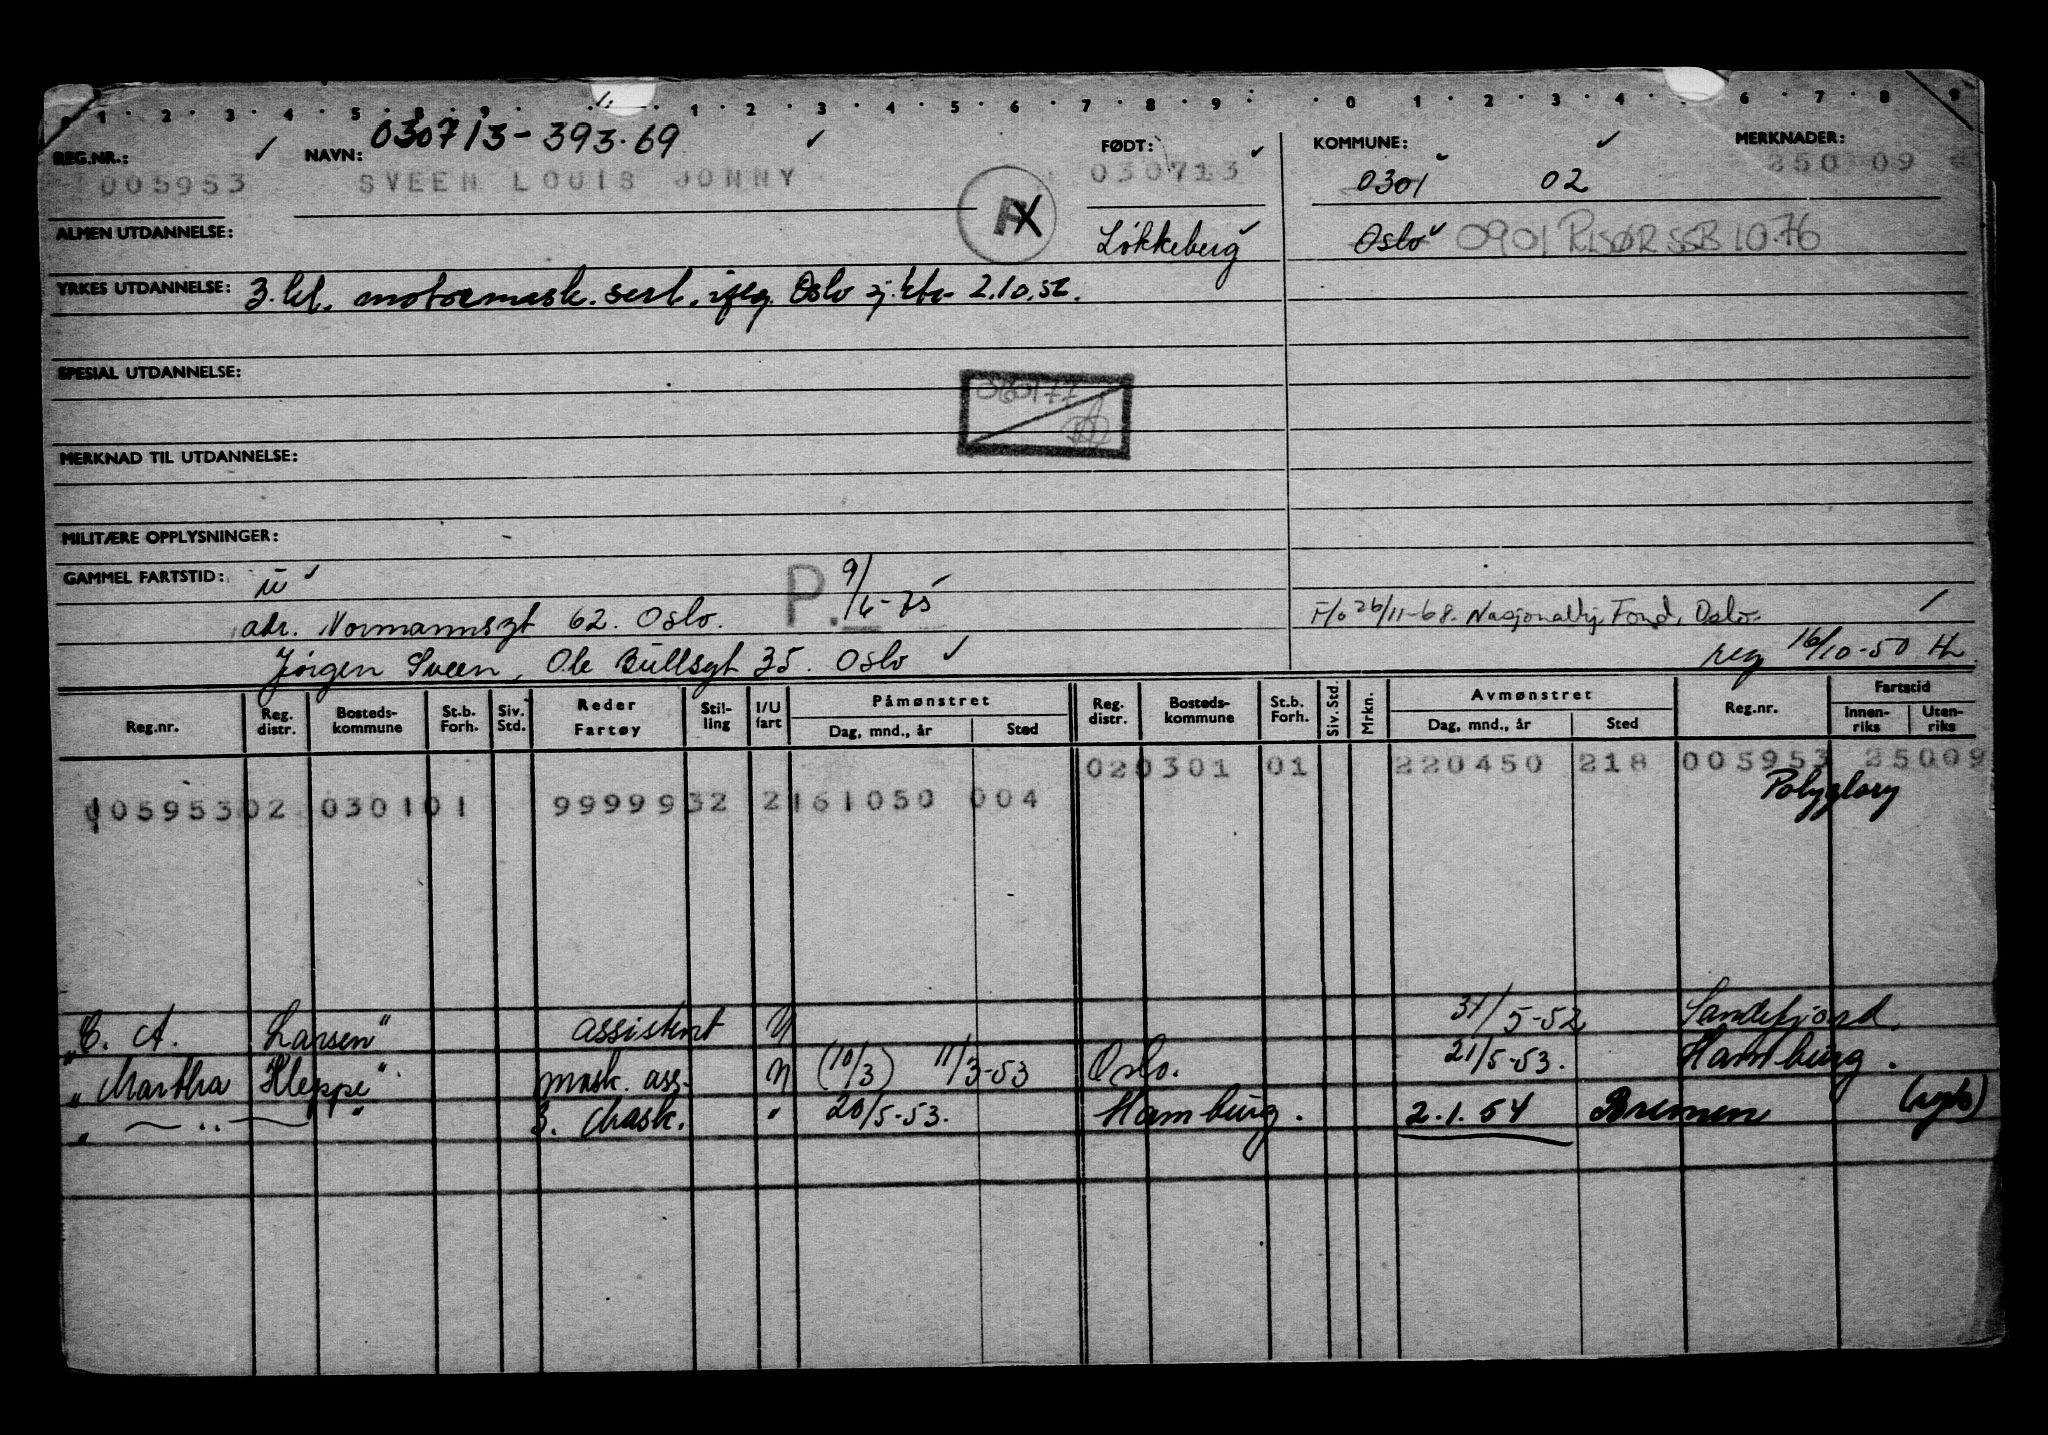 0 1 2 3 4 5 8 9 1 2 3 4 5 6 7 8 9 0 1 2 3 4 6 7 8 9
030713-393.69
REG.NR.: NAVN: FØDT: KOMMUNE: MERKNADER:
005953 SVEEN LOUIS JONNY 030713 0301 02 250 09
ALMEN UTDANNELSE: Løkkeberg Oslo 0901 RISØR SSB 10.76
YRKES UTDANNELSE: 3. kl. motormask. sert. Oslo 2.10.52.
SPESIAL UTDANNELSE:
060177
MERKNAD TIL UTDANNELSE:
MILITÆRE OPPLYSNINGER:
GAMMEL FARTSTID: P. 9/6-75
adr. Normannsgt 62. Oslo. F/o 26/11-68. Nasjonallig Fond, Oslo.
Jörgen Sveen, Ole Bullsgt 35. Oslo reg 16/10-50
Reg.nr. Reg. distr. Bosteds-kommune St.b. Forh. Siv. Std. Reder Fartøy Stil-ling I/U fart Påmønstret Dag, mnd., år Sted Reg. distr. Bosteds-kommune St.b. Forh. Siv. Std. Mrkn. Avmønstret Dag, mnd., år Sted Reg.nr. Fartstid Innen-riks Uten-riks
020301 01 220450 218 005953 25009
Polyglory
00595302 030101 9999932 2161050 004
"C. A. Larsen" assistent U 31/5-52 Sandefjord.
"Martha Kleppe" mask. ass. U (10/3) 11/3-53 Oslo. 21/5-53. Hamburg.
" — " — " 3. Mask. " 20/5-53. Hamburg. 2.1.54 Bremen